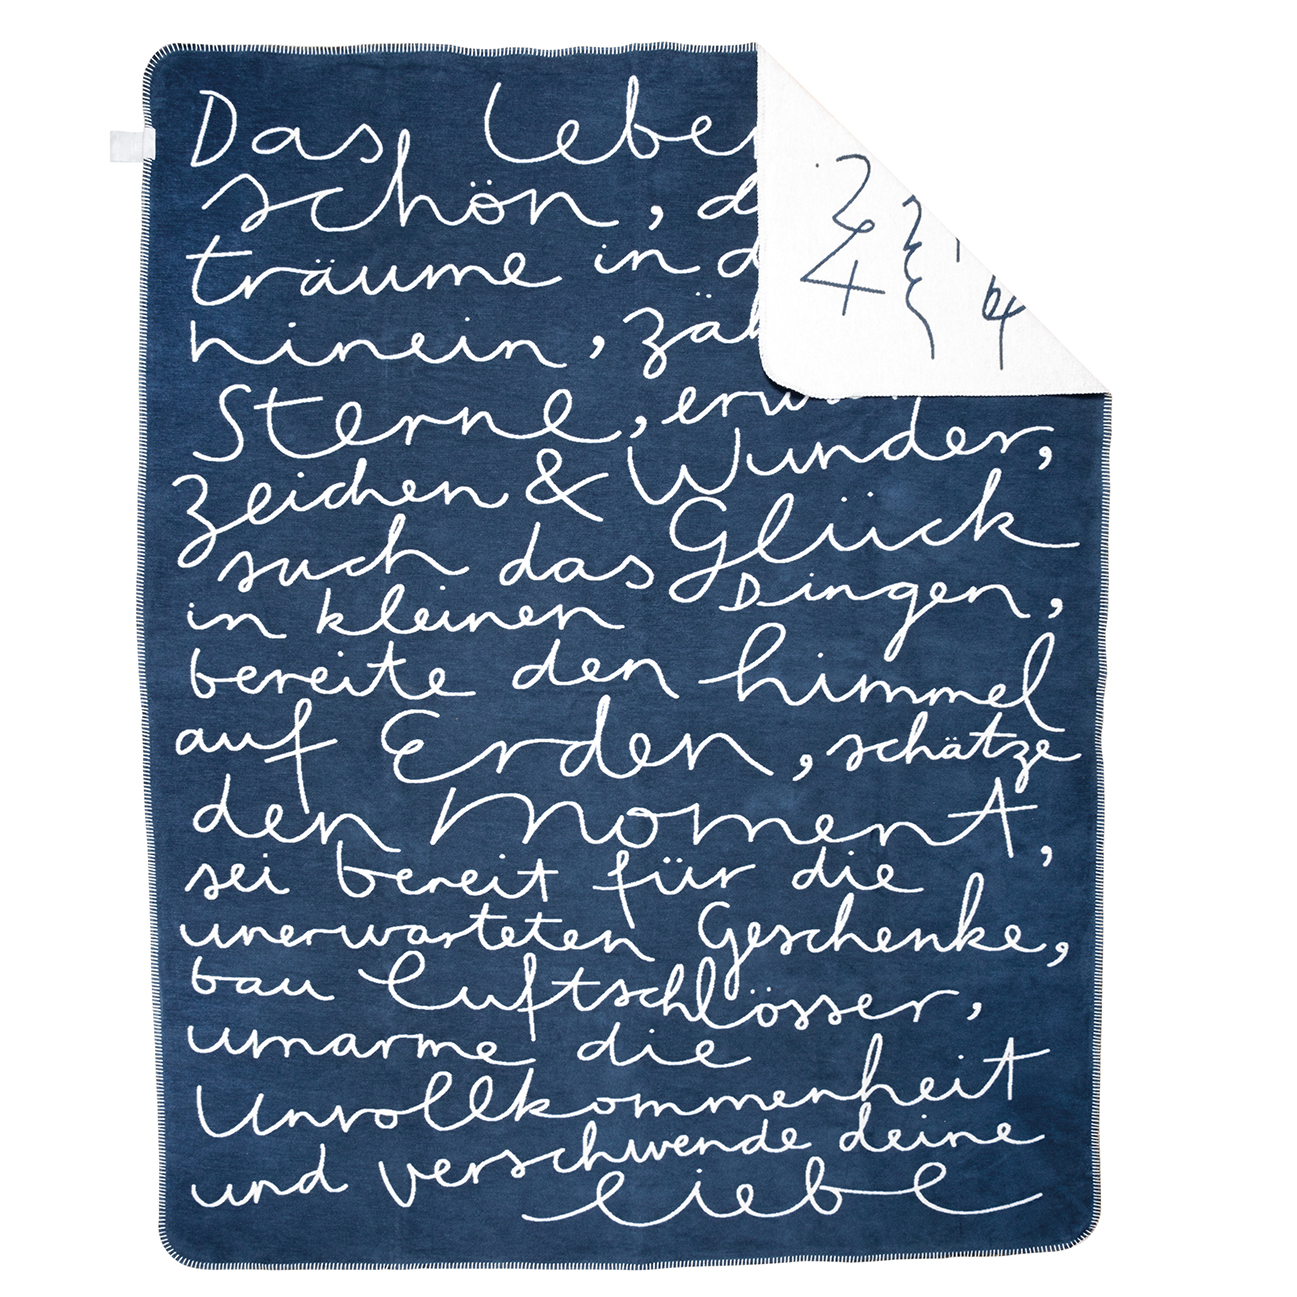 Das Leben
schön, d
träume in d
hinein, zäh
Sterne,
Zeichen & Wunder,
such das Glück
in kleinen Dingen,
bereite den himmel
auf Erden, schätze
den Moment,
sei bereit für die
unerwarteten Geschenke,
bau Luftschlösser,
umarme die
Unvollkommenheit
und verschwende deine
liebe